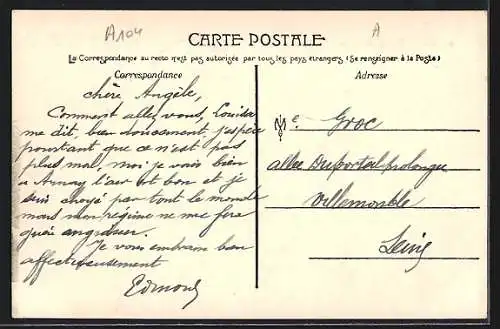 A104
A
CARTE POSTALE
La Correspondance au recto n'est pas autorisée par tous les pays étrangers (Se renseigner à la Poste)
Correspondance
Adresse
chère Angèle,
Comment allez vous, Louisa
me dit, bien doucement, j'espère
pourtant que ce n'est pas
plus mal, moi je vais bien
a Arnay l'air est bon et je
suis choyé par tout le monde
mais mon régime ne me fera
guère engraisser.
Je vous embrasse bien
affectueusement
Edmond
Me Groc
allée Duportail prolongée
Villemomble
Seine